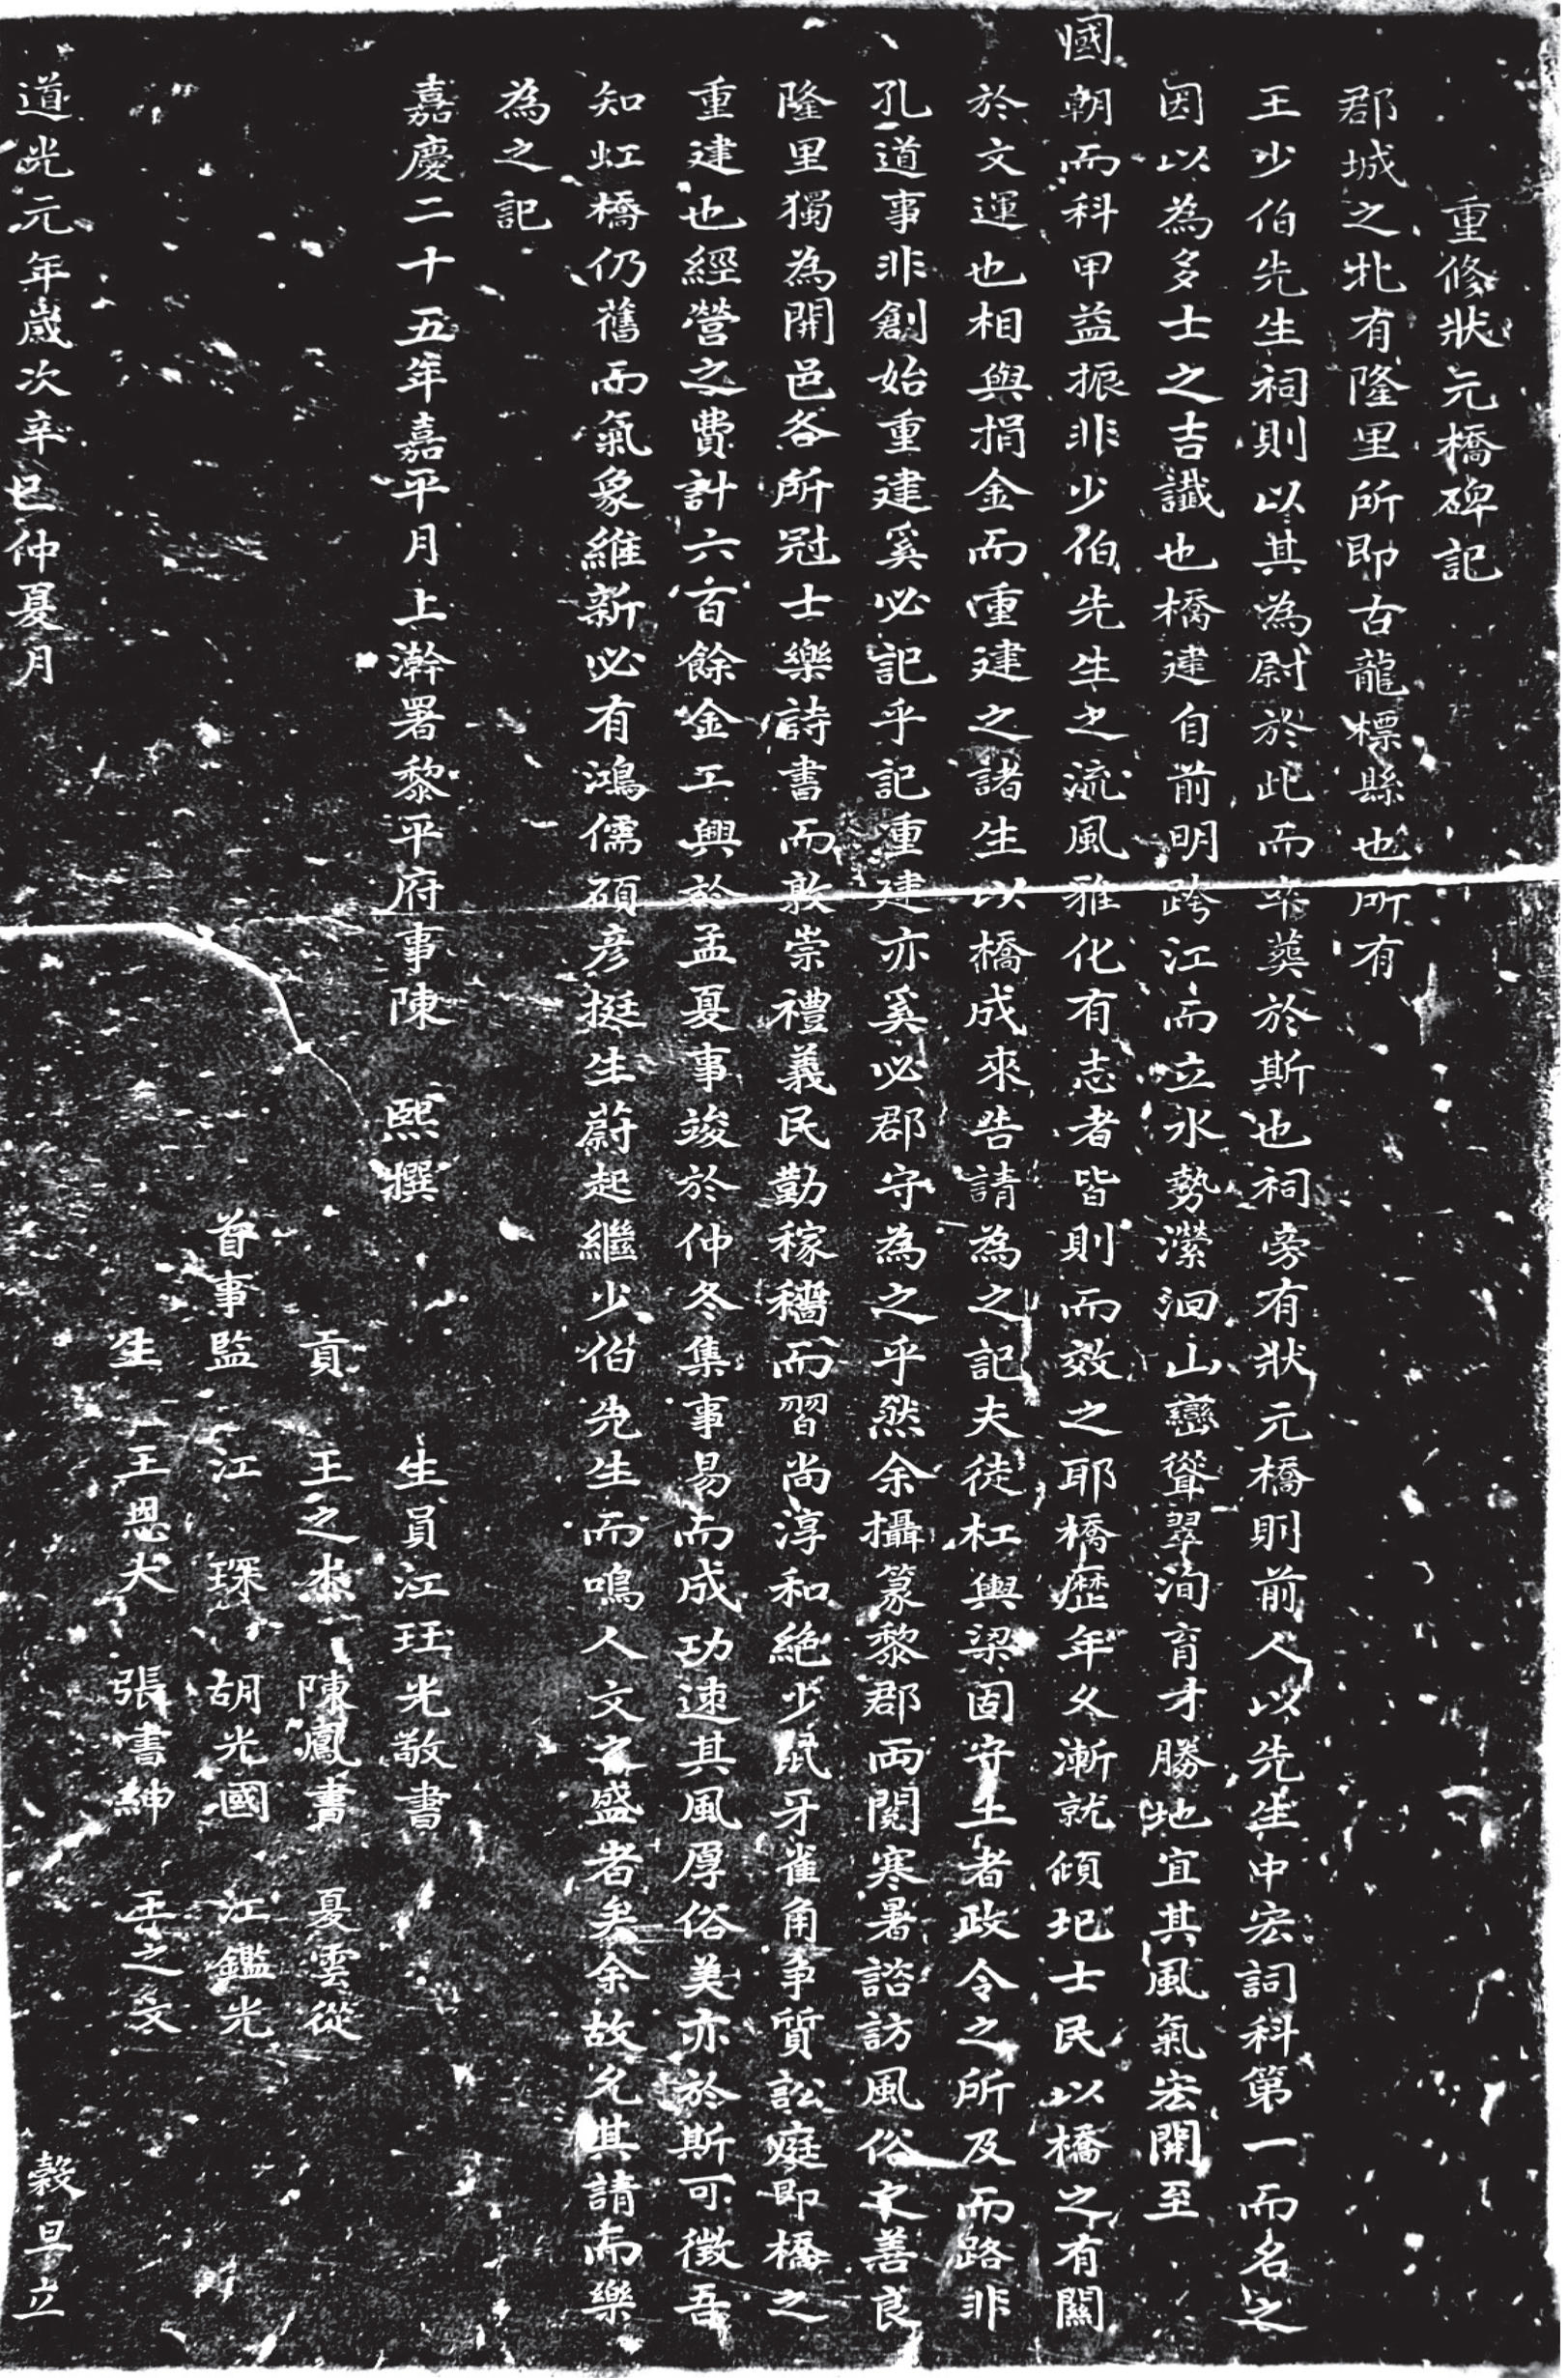 重修狀元橋碑記
郡城之北有隆里所即古龍標縣也所有
王少伯先生祠則以其為尉於此而卒葬於斯也祠旁有狀元橋則前人以先生中宏詞科第一而名之
因以為多士之吉讖也橋建自前明跨江而立水勢瀠洄山巒聳翠洵育才勝地宜其風氣宏開至
國朝而科甲益振非少伯先生之流風雅化有志者皆則而效之耶橋歷年久漸就傾圯士民以橋之有關
於文運也相與捐金而重建之諸生以橋成來告請為之記夫徒杠輿梁固守土者政令之所及而路非
孔道事非創始重建奚必記乎記重建亦奚必郡守為之乎然余攝篆黎郡兩閱寒暑諮訪風俗之善良
隆里獨為開邑各所冠士樂詩書而敦崇禮義民勤稼穡而習尚淳和絕少鼠牙雀角爭質訟庭即橋之
重建也經營之費計六百餘金工興於孟夏事竣於仲冬集事易而成功速其風厚俗美亦於斯可徵吾
知虹橋仍舊而氣象維新必有鴻儒碩彥挺生蔚起繼少伯先生而鳴人文之盛者矣余故允其請而樂
為之記
嘉慶二十五年嘉平月上澣署黎平府事陳熙撰
生員江玨光敬書
貢 王之杰 陳鳳書 夏雲從
首事監 江琛 胡光國 江鑑光
生 王恩大 張書紳 王之文
道光元年歲次辛巳仲夏月 穀旦立